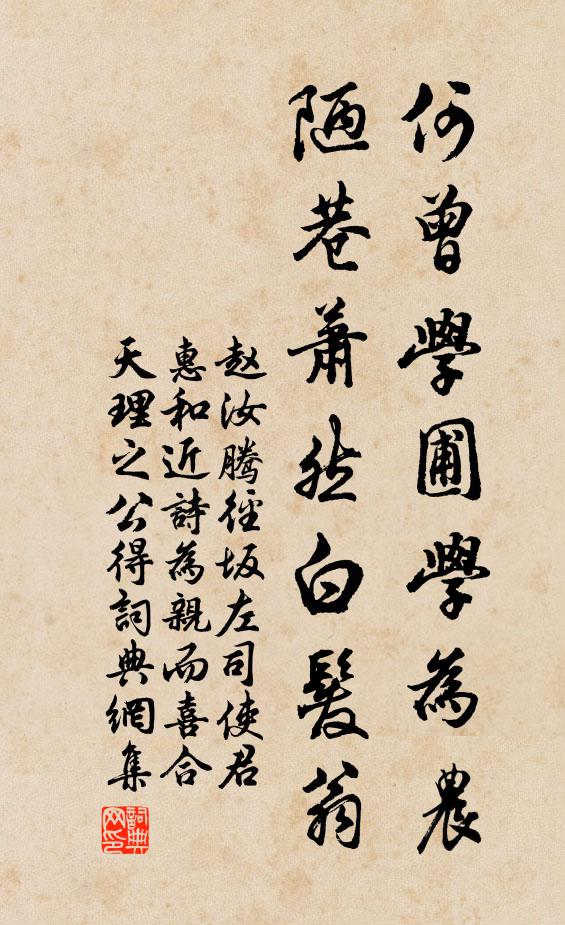 何曾學圃學為農
陋巷蕭然白髮翁
赵汝腾徑坂左司使君
惠和近詩為親而喜合
天理之公得詞典網集
詞典网印